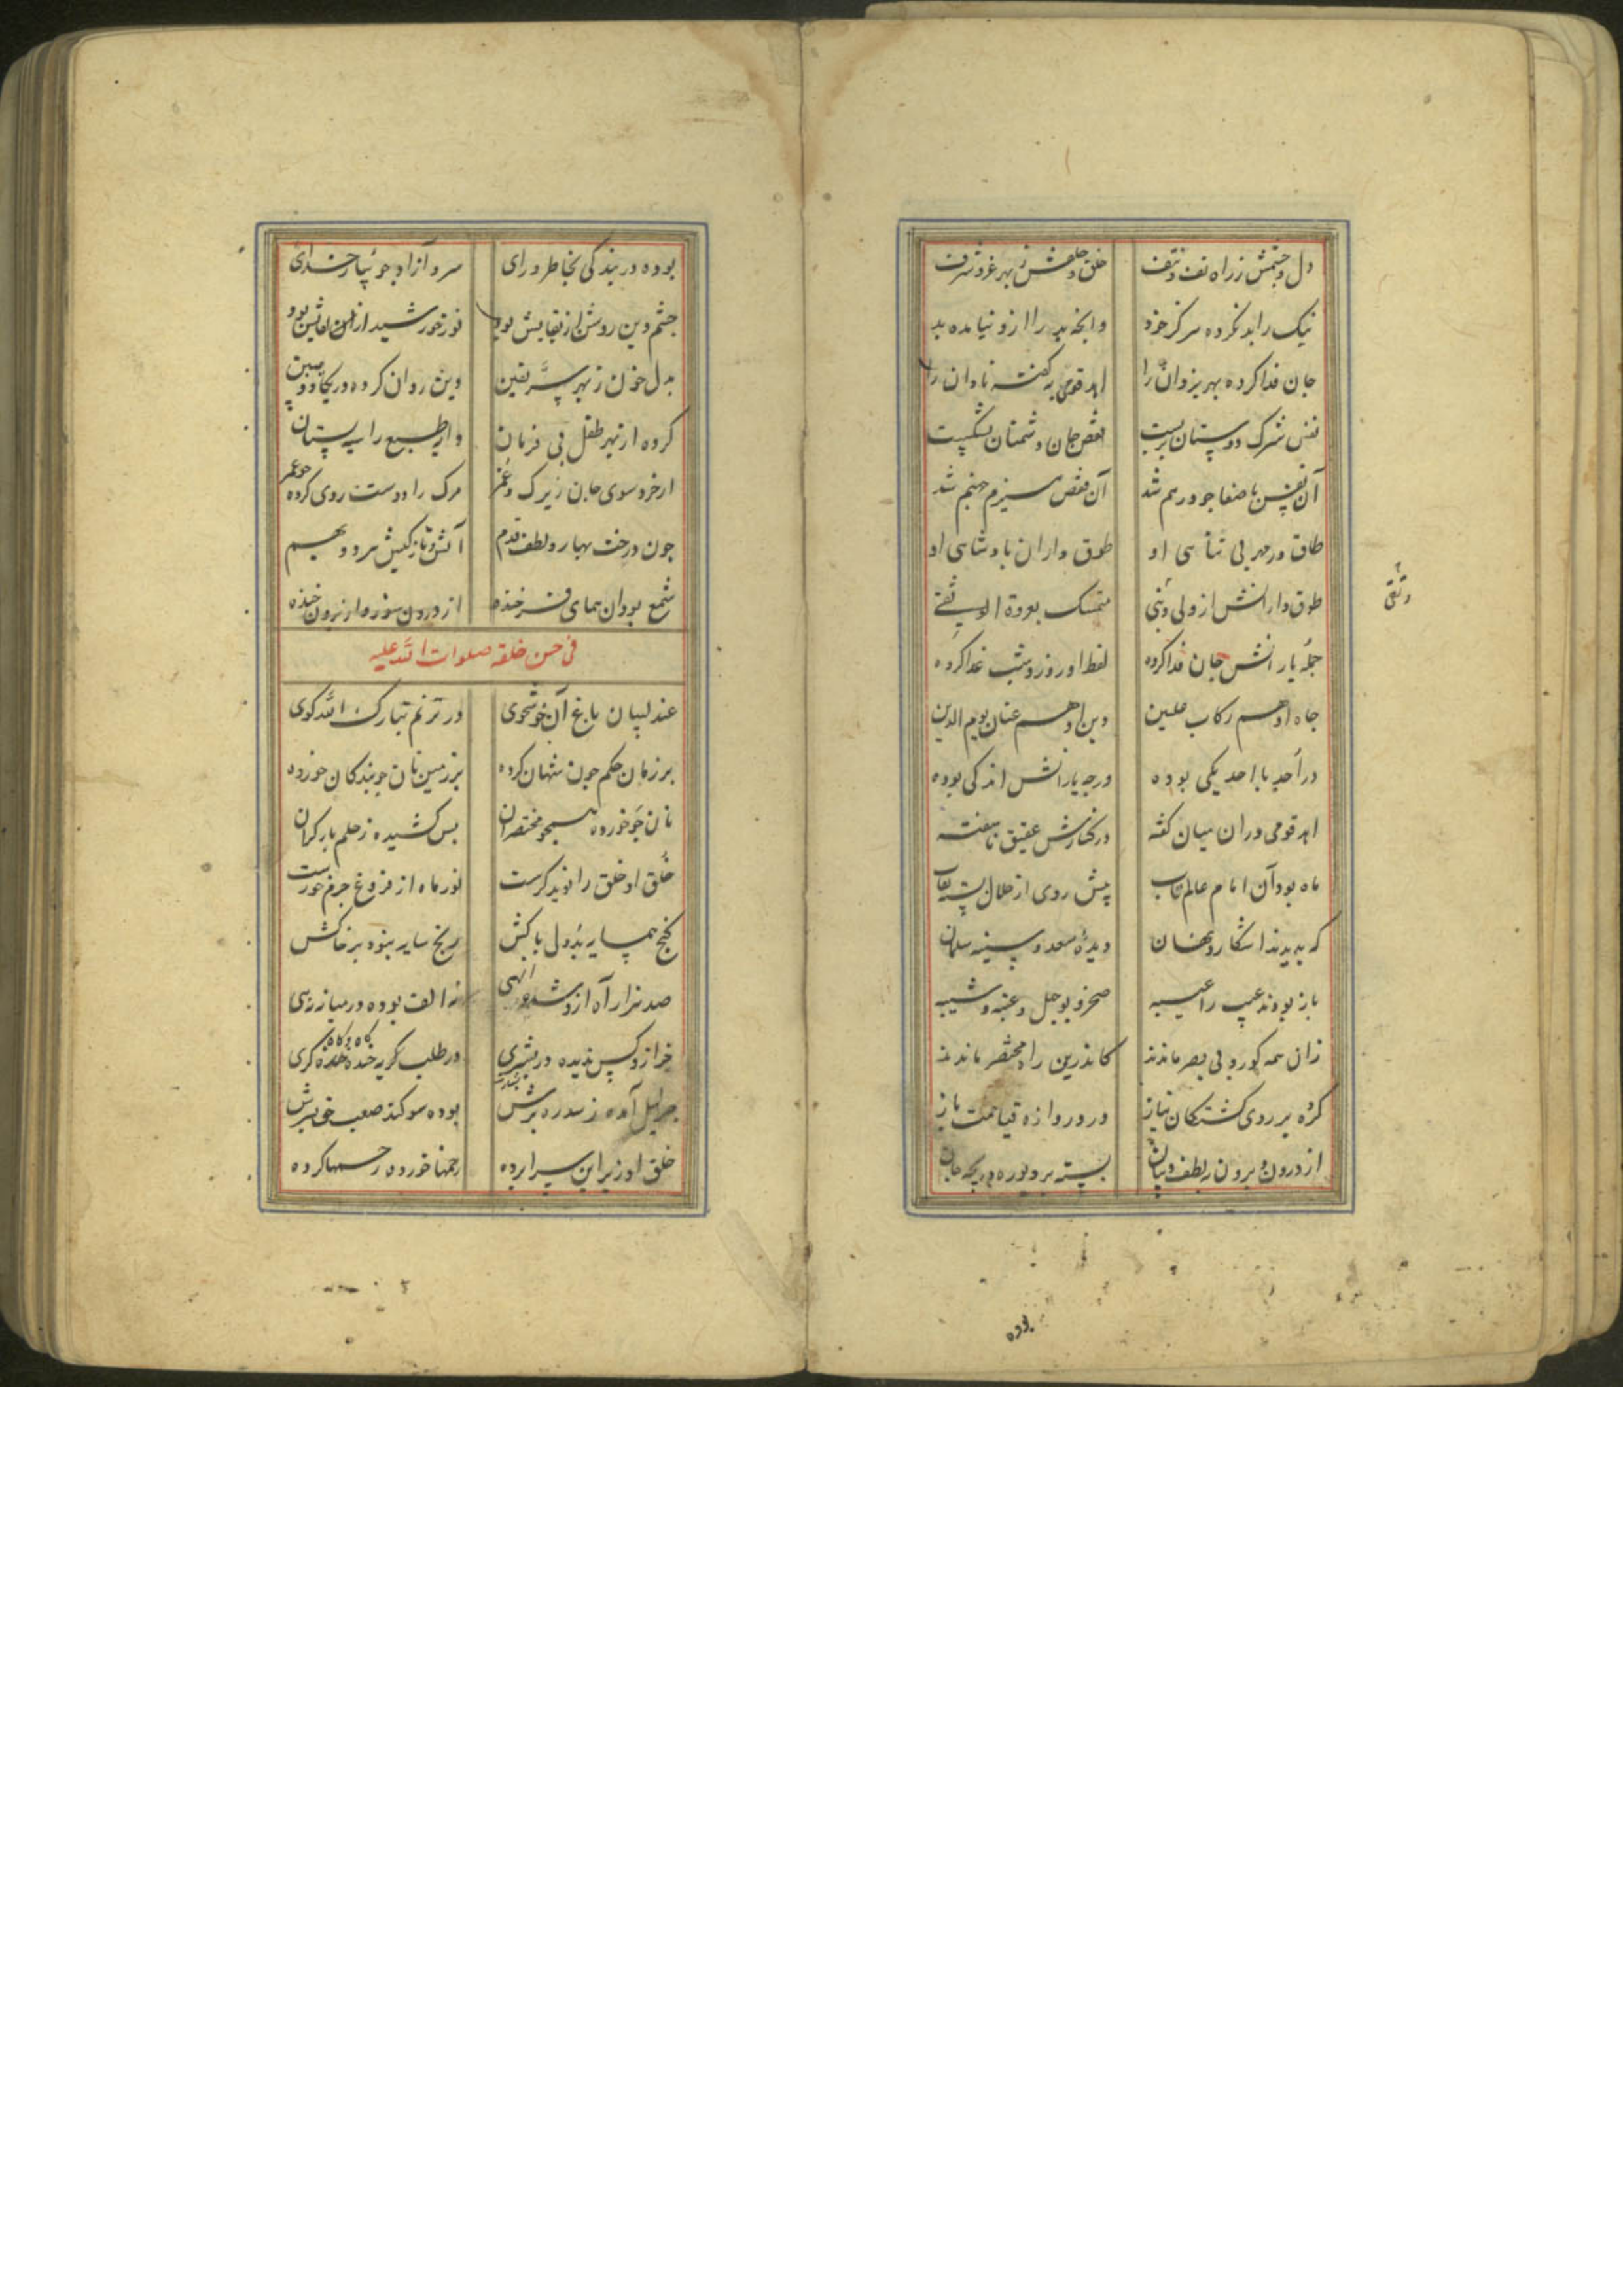 دل و چشمش ز راه تف و تف خلق و خلقش ز بهر عز و شرف
نیک را بد نکرده هرگز خود وانچه بد را ازو نیامده بد
جان فدا کرده بهر یزدان را اهد قومی بگفته نادان را
نفس شرک دوستان بربست قفص جان دشمنان بشکست
آن نفس با صفا چو درهم شد آن قفص هیزم جهنم شد
طاق در مهر بی تناسی او طوق داران پادشاسی او
طوق دارانش از ولی و نبی متمسک بعروة الوثقی
وثقی
جمله یارانش جان فدا کرده لفظ او روز و شب غدا کرده
جاه او هم رکاب علیین دین او هم عنان یوم الدین
در اُحد با احد یکی بوده درجه یارانش اندکی بوده
اهد قومی در آن میان گفته در کنارش عقیق ناسفته
ماه بود آن امام عالم تاب پیش روی از هلال بسته نقاب
که بدیدند آشکار و نهان دیده سعد و سینه سلمان
باز بودند عیب را عیبه صخر و بوجهل و عتبه و شیبه
زان همه کور و بی بصر ماندند کاندرین راه مختصر ماندند
کرده بر روی کشتگان نیاز در دروازه قیامت باز
از درون و برون ز لطف و بیان بسته بر دوره دریچه جان
بوده
بوده در بندگی بخاطر و رای سرو آزاد جویبار خدای
چشم دین روشن از بقایش بود نور خورشید از لقایش بود
بدل خون ز بهر سر یقین دین روان کرده در یکاد و مبین
کرده از بهر طفل بی فرمان دایه طبع را سیه پستان
از خرد سوی جان زیرک و غمر مرگ را دوست روی کرده چو عمر
چون درخت بهار و لطف قدم
شمع بود آن همای فرخنده از درون سوز و از برون خنده
فی حسن خلقه صلوات الله علیه
عندلیبان باغ آن خوشخوی در ترنم تبارک الله گوی
بر زمان حکم چون شهان کرده بر زمین نان چو بندگان خورده
نان جو خورده همچو مختصران بس کشیده ز حلم بار گران
خلق او خلق را نوید گرست نور ماه از فروغ جرم خورست
گنج همسایه بد ول پاکش رنج سایه نبود بر خاکش
صد هزار آه از و شده الهی نه الف بوده در میانه زهی
جز ازو کس ندیده در بشری در طلب گریه خنده گاه گری
جبرئیل آمده ز سدره برش بوده سوگند صعب حق بسرش
خلق او زیر این سراپرده زخمها خورده رحمها کرده